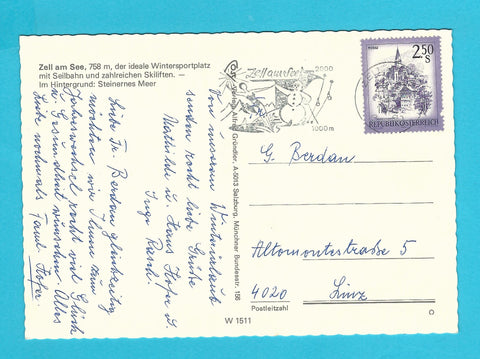 Zell am See, 758 m, der ideale Wintersportplatz
mit Seilbahn und zahlreichen Skiliften. —
Im Hintergrund: Steinernes Meer
Von unserem Winterurlaub
senden recht liebe Grüße
Mathilde u. Hans Hofer u.
Inge
Liebe Fr. Berdan gleichzeitig
möchten wir Ihnen zum
Jahreswechsel recht viel Glück
u. Gesundheit wünschen. Alles
Gute nochmals Fam. Hofer
Gründler, A-5013 Salzburg, Münchner Bundesstr. 156
W 1511
Zell am See
2000
1000m
2.50
S
REPUBLIK ÖSTERREICH
G. Berdan
Altomontestraße 5
4020 Linz
Postleitzahl